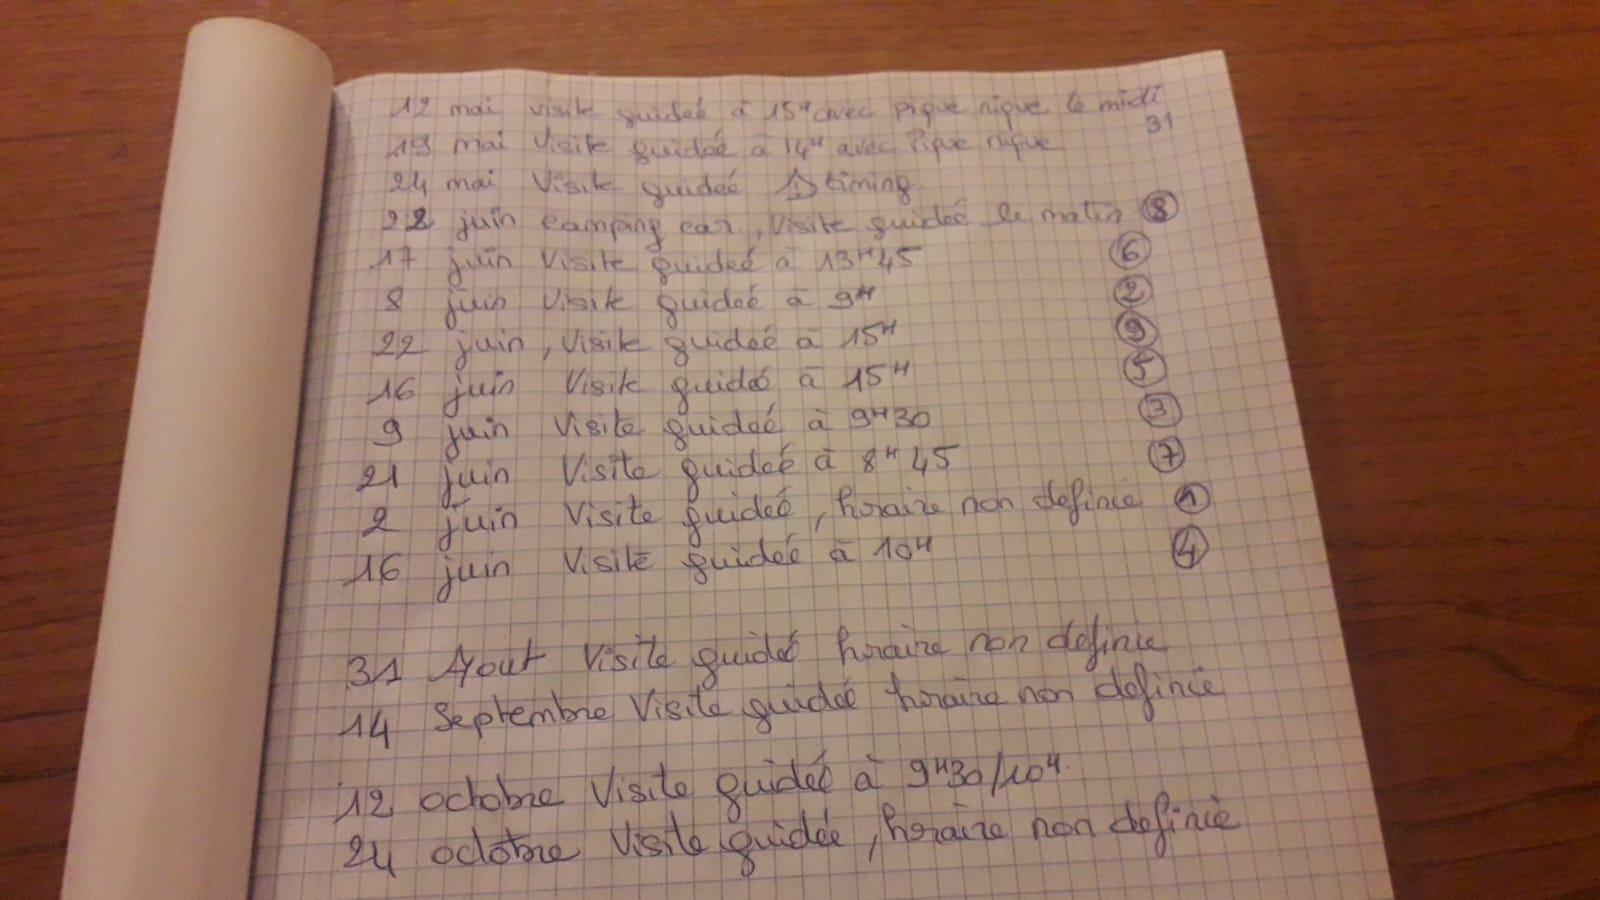 12 mai visite guideé à 15H avec pique nique le midi
31
19 mai Visite guideé à 14H avec Pique nique
24 mai Visite guideé ⚠ timing
22 juin camping car, Visite guideé le matin ⑧
17 juin Visite guideé à 13H45 ⑥
8 juin Visite guideé à 9H ②
22 juin, Visite guideé à 15H ⑨
16 juin Visite guideé à 15H ⑤
9 juin Visite guideé à 9H30 ③
21 juin Visite guideé à 8H45 ⑦
2 juin Visite guideé, horaire non definie ①
16 juin Visite guideé à 10H ④
31 Aout Visite guideé horaire non definie
14 Septembre Visite guideé horaire non definie
12 octobre Visite guideé à 9H30/10H.
24 octobre Visite guideé, horaire non definie